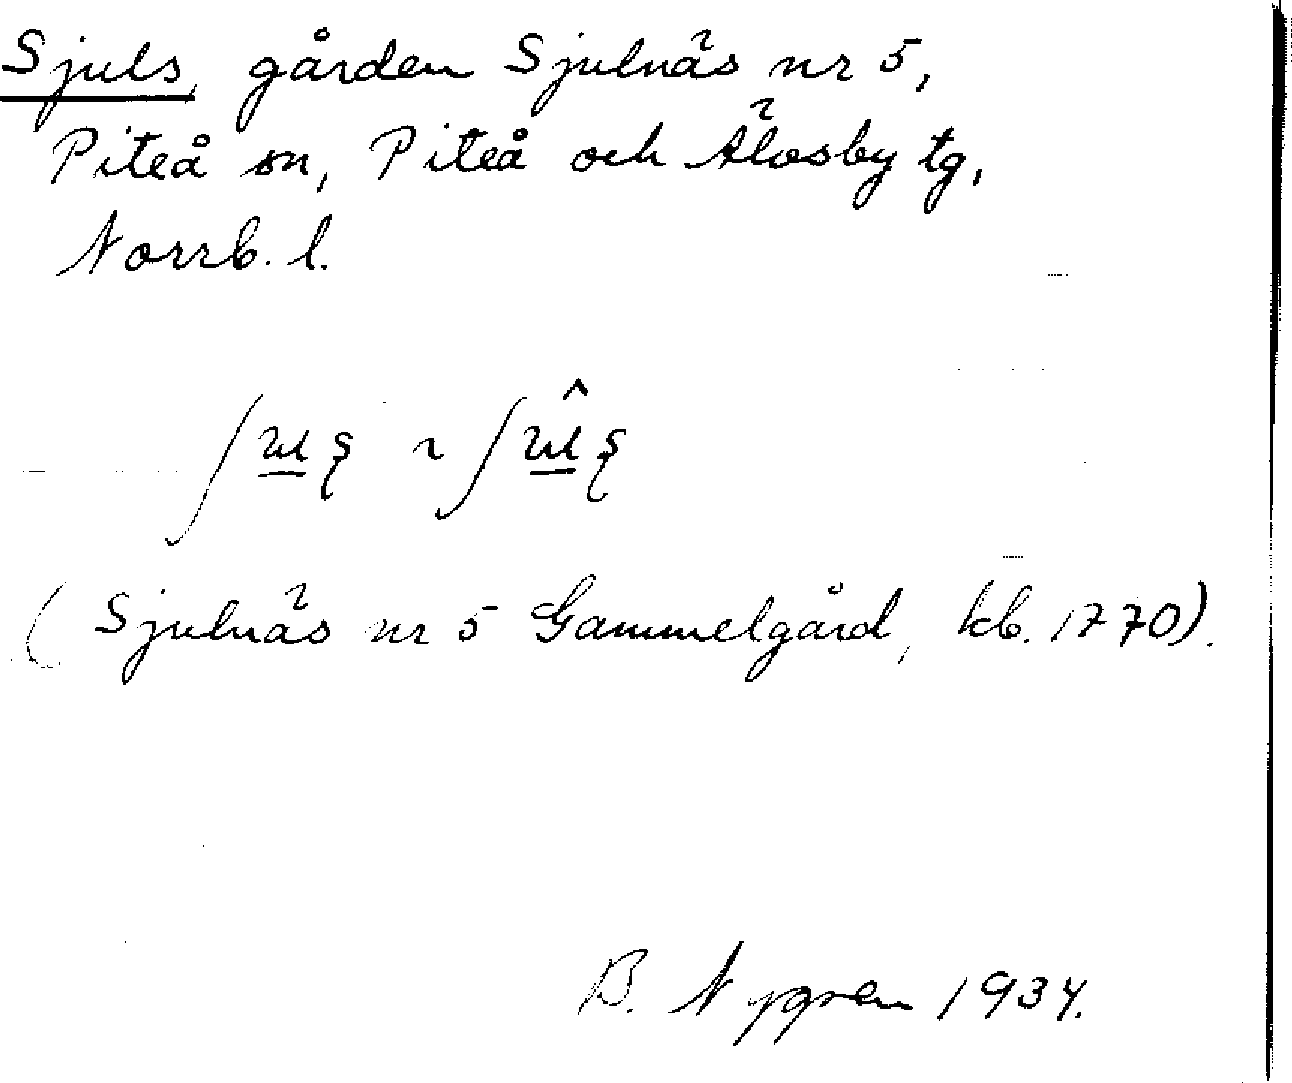 Sjuls, gården Sjulnäs nr 5,
Piteå sn, Piteå och Älvsby tg,
Norrb. l.
(Sjulnäs nr 5 Gammelgård, kb. 1770).
B. Nygren 1934.